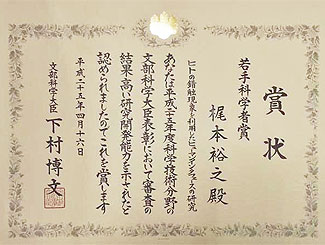 賞状
若手科学者賞
梶本裕之殿
ヒトの錯触現象を利用したヒューマンインタフェースの研究
あなたは平成二十五年度科学技術分野の
文部科学大臣表彰において審査の
結果高い研究開発能力を示されたと
認められましたのでこれを賞します
平成二十五年四月十六日
文部科学大臣 下村博文